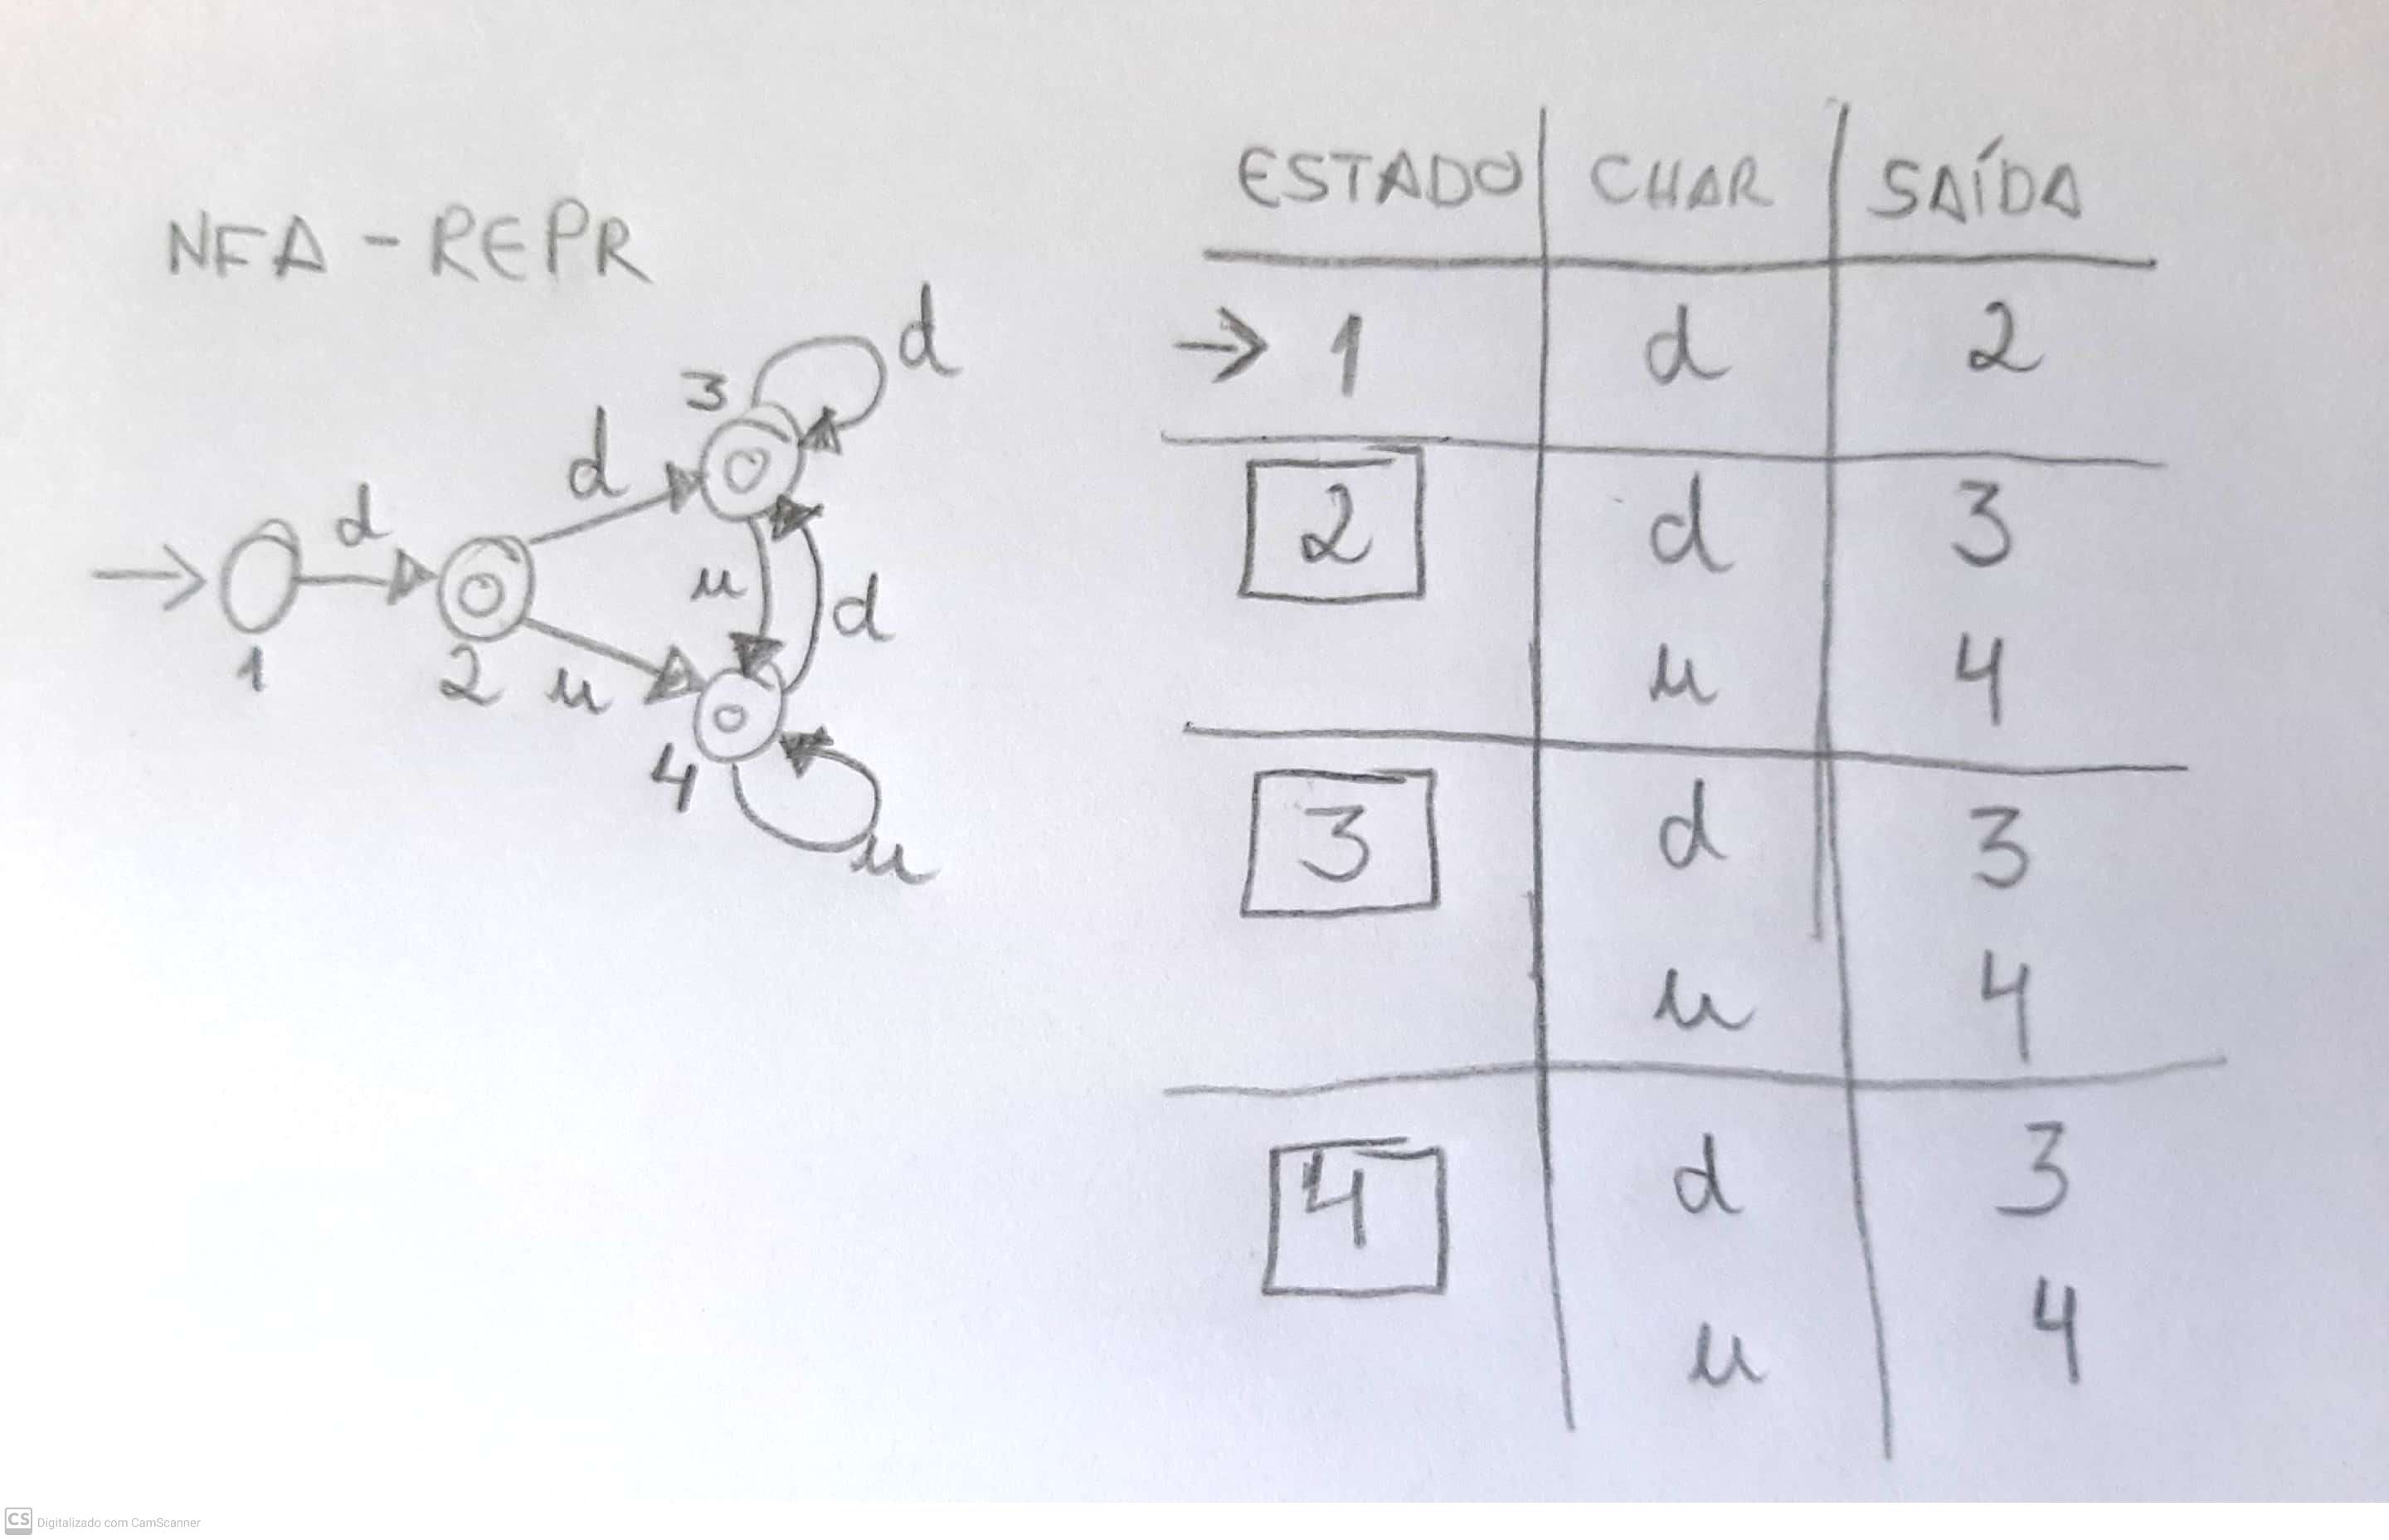 NFA - REPR
d
3
d
d
u
d
1
2
u
4
u
ESTADO CHAR SAÍDA
→ 1 d 2
2 d 3
u 4
3 d 3
u 4
4 d 3
u 4
CS Digitalizado com CamScanner